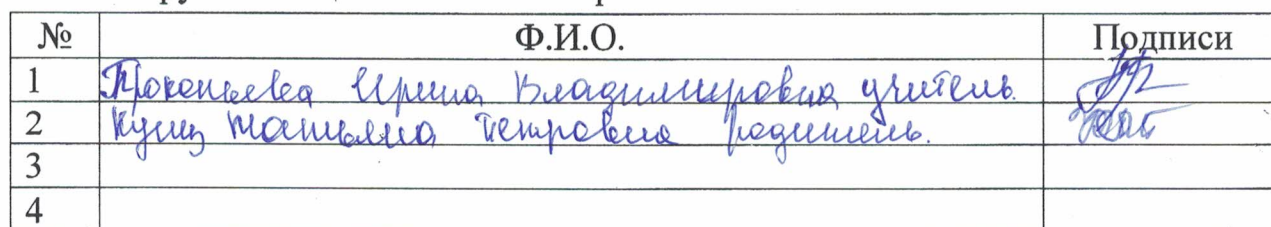 № Ф.И.О. Подписи
1 Прокопьева Ирина Владимировна учитель.
2 Татьяна Петровна родитель.
3
4